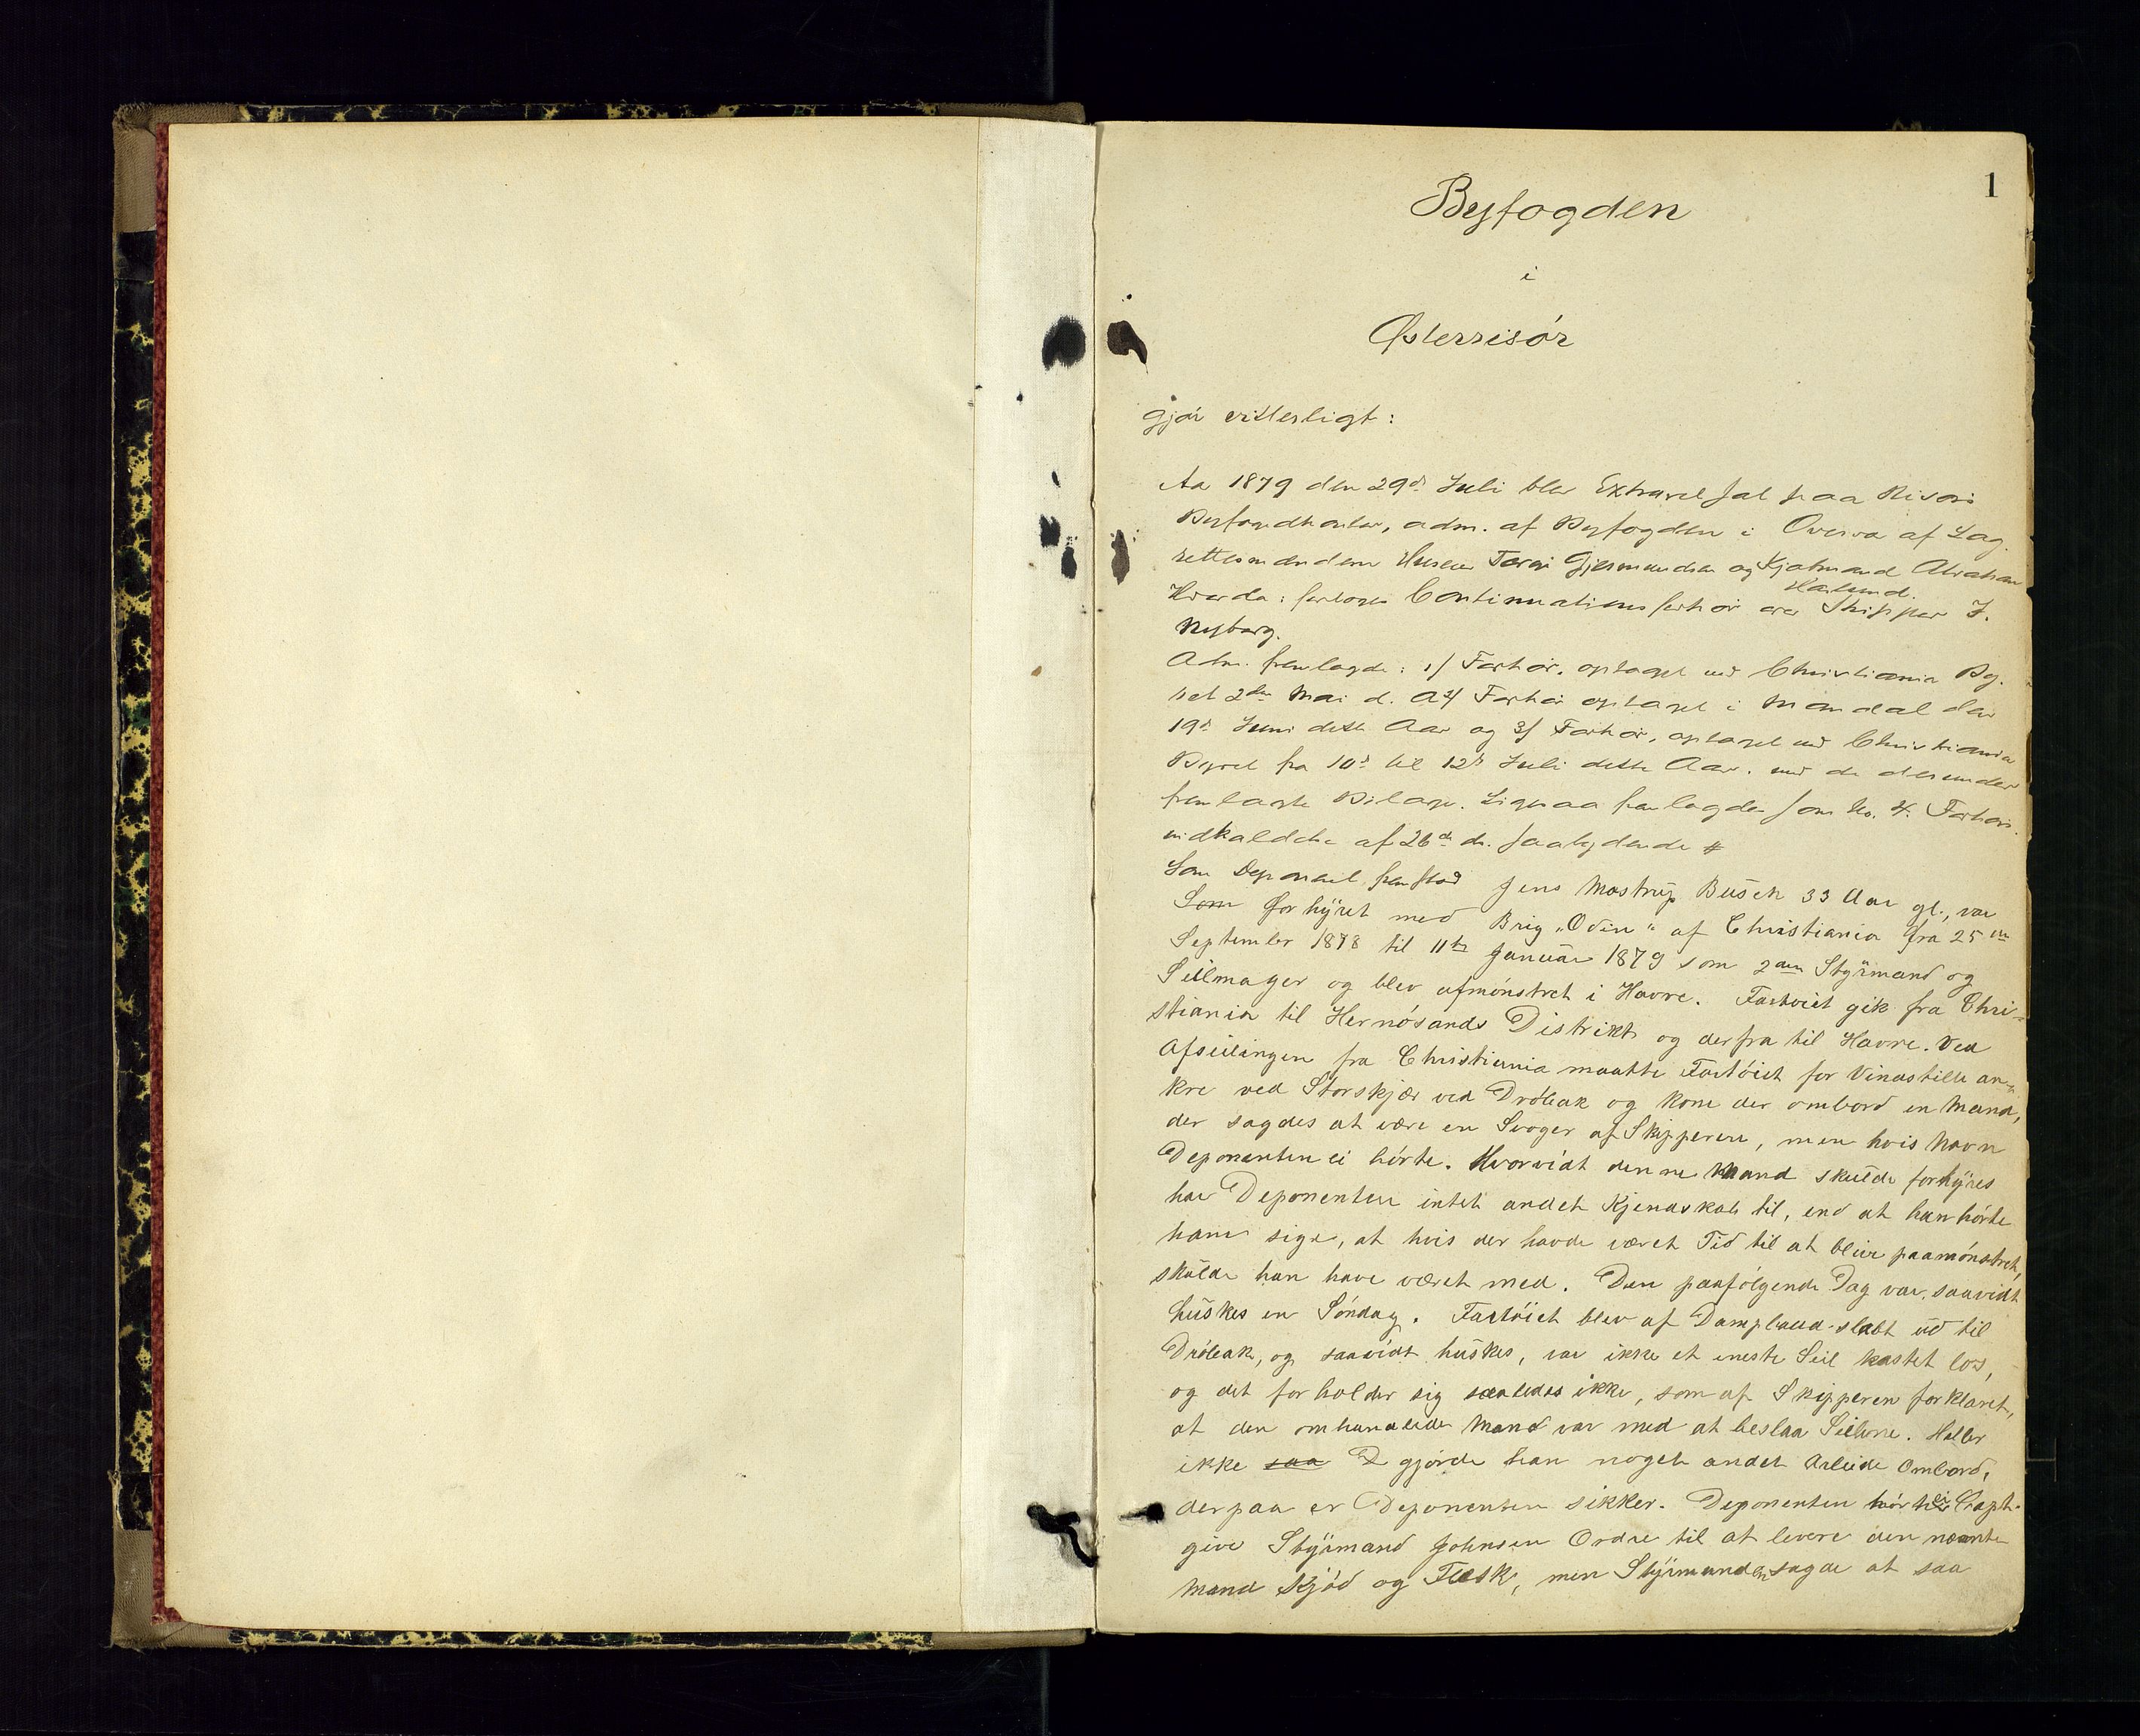 1
Byfogden
i
Østerrisór
gjór vitterligt:
Aa 1879 den 29de Juli blev Extraret sat paa Risørs
Byfogedkontor, adm. af Byfogden i Overvær af Lag
rettesmændene Huseier Terje Gjermundsen og Kjøbmand Abraham
Hørlund.
Hvorda: foretoges Continuationsforhør over Skipper J.
Nyberg.
Adm. fremlagde: 1/ Forhør, optaget ved Christiania By
ret 2den Mai d. A 2/ Forhør optaget i Mandal den
19de Juni dette Aar og 3/ Forhør, optaget ved Christiania
Byret fra 10de til 12te Juli dette Aar. med de derunder
fremlagte Bilage. Ligesaa fremlagdes som No. 4. Forhørs
indkaldelse af 26de ds. saalydende #
Som Deponent fremstod Jens Mostrup Busch 33 Aar gl., var
Som forhyret med Brig "Odin" af Christiania fra 25de
September 1878 til 11te Januar 1879 som 2den Styrmand og
Seilmager og blev afmónstret i Havre. Fartøiet gik fra Chri-
stiania til Hernósands Distrikt og derfra til Havre. Ved
Afseilingen fra Christiania maatte Fartóiet for Vindstille an-
kre ved Storskjær ved Dróbak og kom der ombord en Mand,
der sagdes at være en Svoger af Skipperen, men hvis Navn
Deponenten ei hórte. Hvorvidt denne Mand skulde forhyres
har Deponenten intet andet Kjendskab til, end at han hórte
ham sige, at hvis der havde været Tid til at blive paamónstret,
skulde han have været med. Den paafólgende Dag var, saavidt
huskes en Sóndag. Fartóiet blev af Dampbaad slæbt ud til
Dróbak, og saavidt huskes, var ikke et eneste Seil kastet los,
og det forholder sig saaledes ikke, som af Skipperen forklaret,
at den omhandlede Mand var med at beslaa Seilene. Heller
ikke saa D gjorde han noget andet Arbeide Ombord,
derpaa er Deponenten sikker. Deponenten hórte ei Capt.
give Styrmand Johnsen Ordre til at levere den nævnte
Mand Kjód og Flesk, men Styrmanden sagde at saa